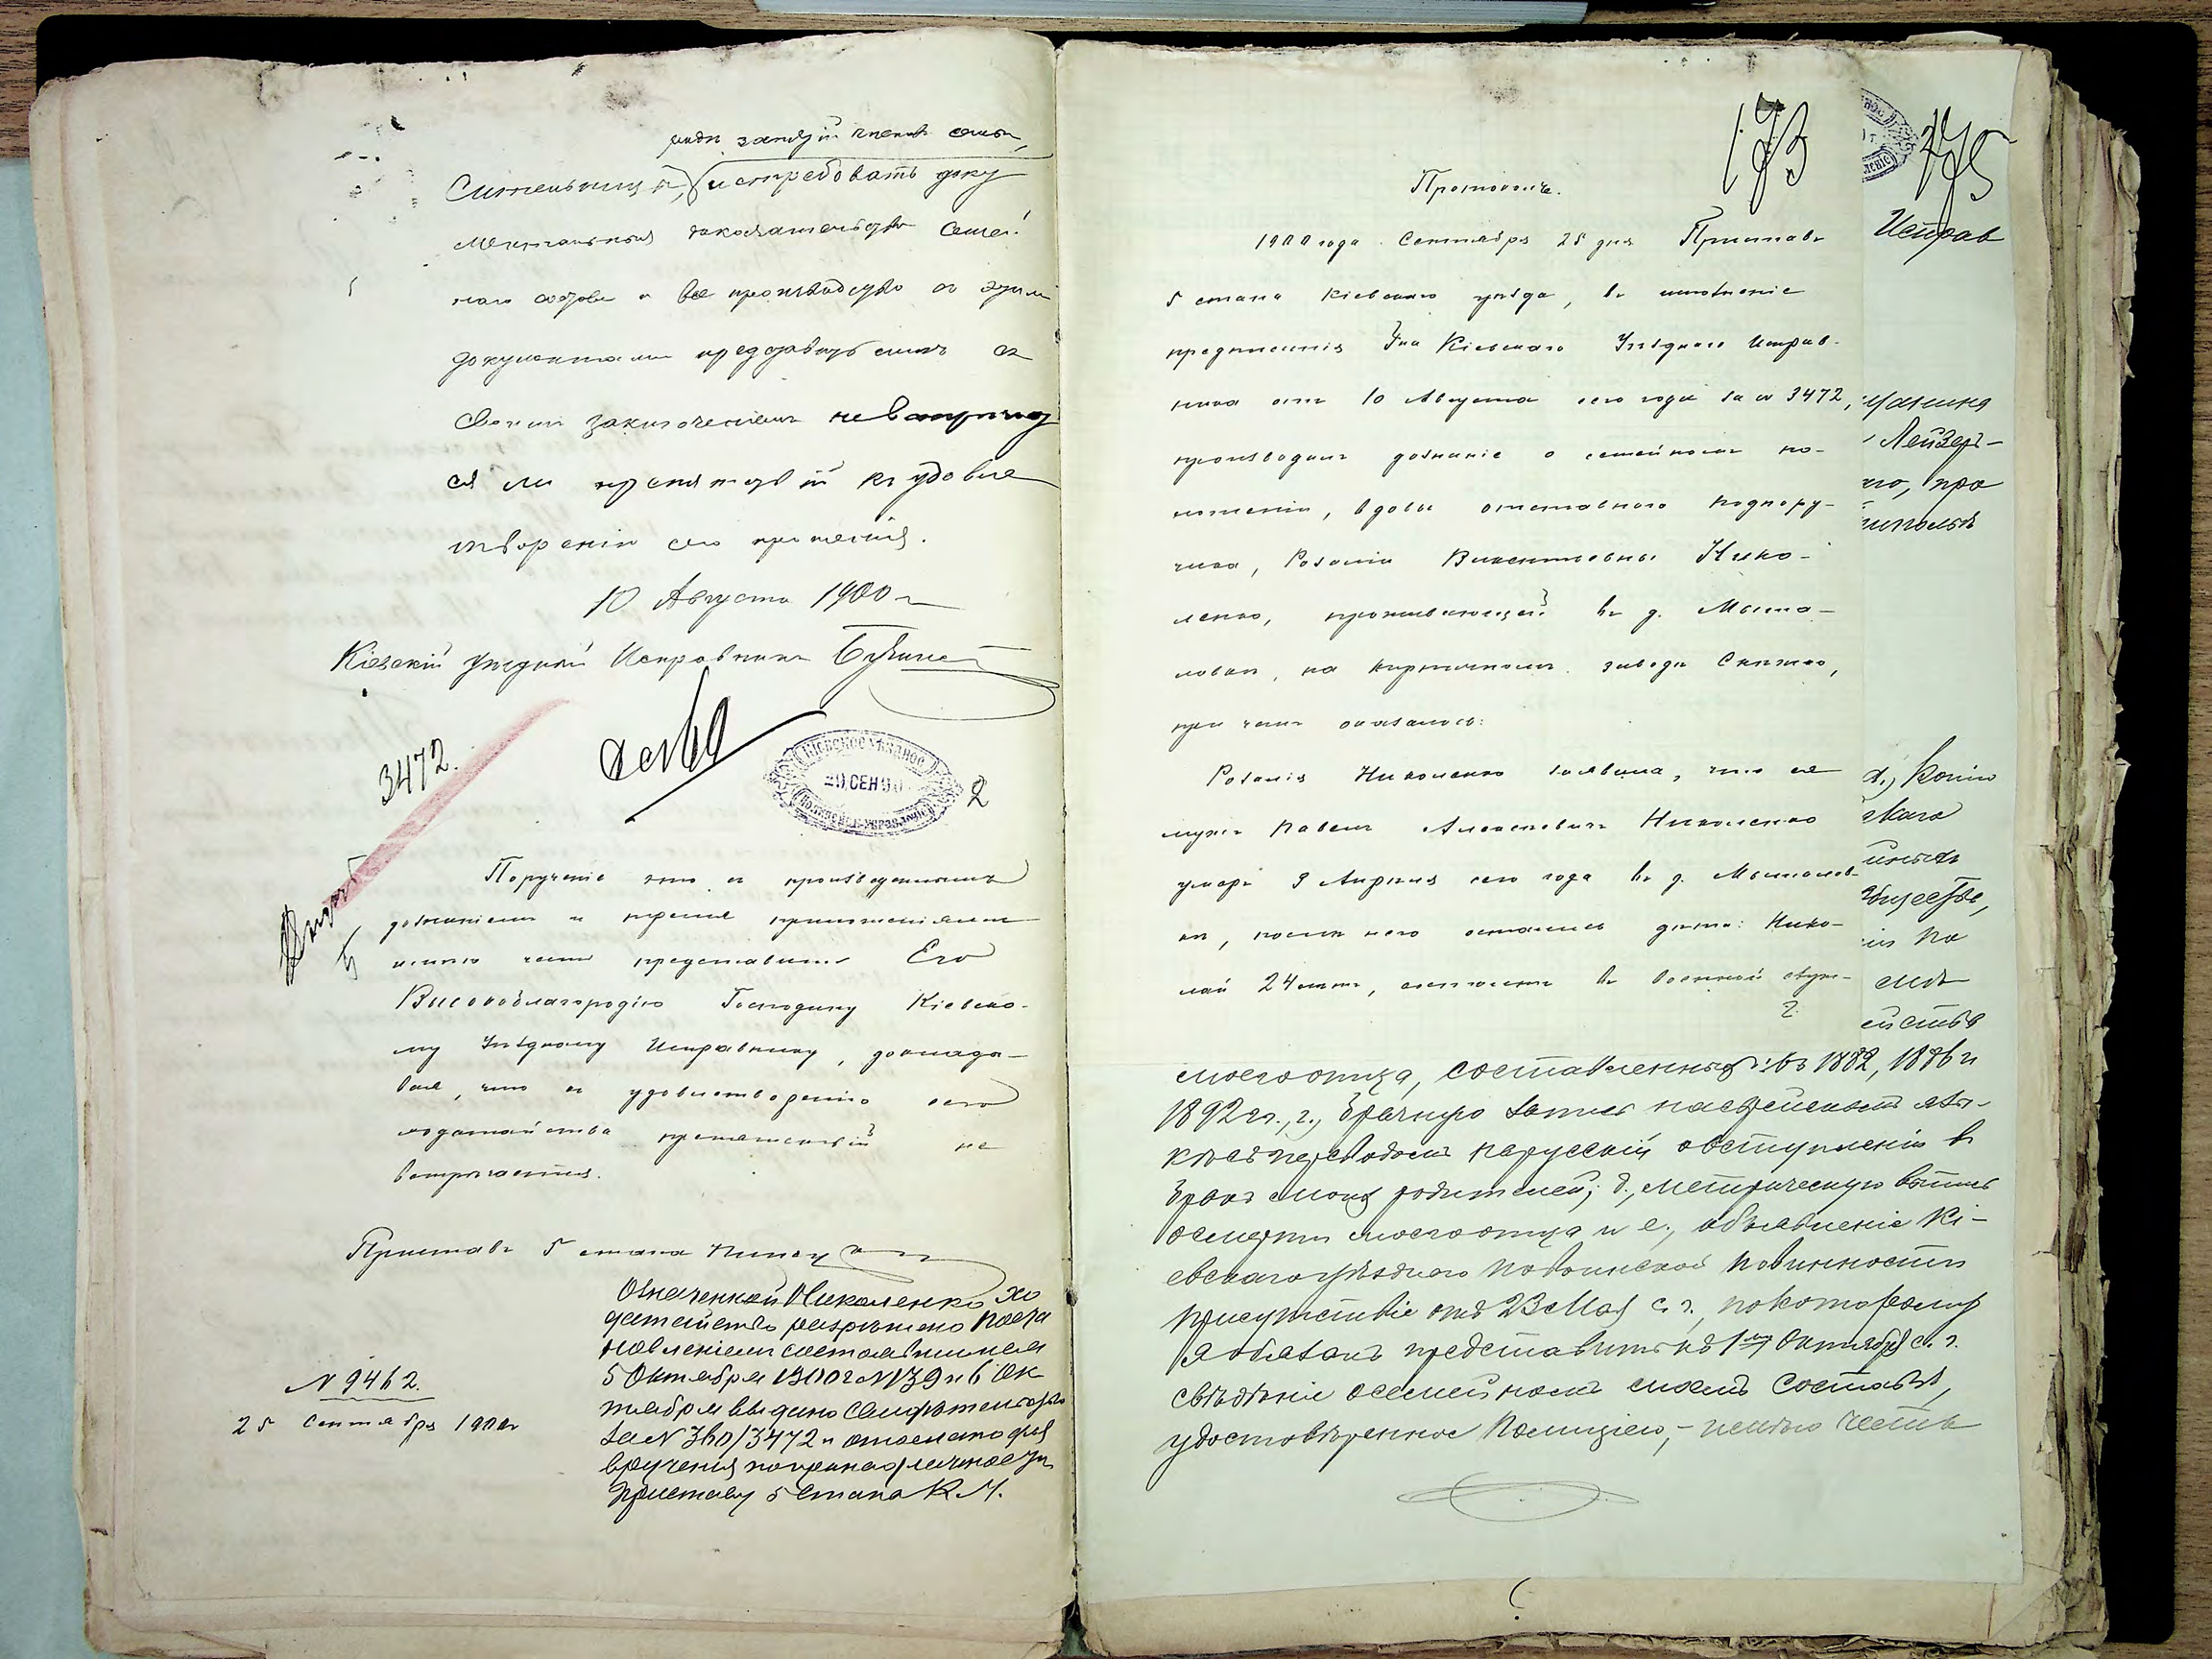 истребовать доку
ментальныя доказательства семей
наго состава и все производство съ этими
документами представить мнѣ съ
своимъ заключеніемъ не встрѣчает
ся ли препятствій къ удовле
творенію сего прошенія.
10 Августа 1900 г.
Кіевскій Уѣздный Исправникъ
3472.
КІЕВСКОЕ УѢЗДНОЕ
20 СЕН 90
ПОЛИЦЕЙС. УПРАВЛЕНІЕ
2
Порученіе это съ произведеннымъ
дознаніемъ и тремя приложеніями
имѣю честь представить Его
Высокоблагородію Господину Кіевско-
му Уѣздному Исправнику, доклады-
вая, что къ удовлетворенію сего
ходатайства препятствій не
встрѣчается.
Приставъ 5 стана
№ 9462.
25 Сентября 1900 г.
Означенной Николенко хо
датайство разрѣшено поста
новленіемъ состоявшимся
5 Октября 1900 г № 139 и 6 Ок
тября выдано Свидѣтельство
за № 360/3472 и отослано для
врученія по принадлежности
Приставу 5 стана К. У.
173
Протоколъ.
1900 года Сентября 25 дня Приставъ
5 стана Кіевскаго уѣзда, во исполненіе
предписанія Г на Кіевскаго Уѣзднаго Исправ-
ника отъ 10 Августа сего года за № 3472,
производилъ дознаніе о семейномъ по-
ложеніи, вдовы отставного подпору-
чика, Розаліи Викентьевны Нико-
ленко, проживающей въ д. Мышо-
ловкѣ, на кирпичномъ заводѣ Снежко,
при чемъ оказалось:
Розалія Николенко заявила, что ея
мужъ Павелъ Алексѣевичъ Николенко
умеръ 9 Апрѣля сего года въ д. Мышолов-
кѣ, послѣ него остались дѣти: Нико-
лай 24 лѣтъ, состоитъ въ военной служ-
2.
175
Исправ
Лейзеръ-
его, про
д., Копію
скаго
обществѣ,
на
моего отца, составленныхъ въ 1882, 1886 и
1892 гг., г., брачную запись на еврейскомъ язы-
кѣ съ переводомъ на русскій о вступленіи въ
бракъ моихъ родителей; д., метрическую выпись
о смерти моего отца и е., объявленіе Кі-
евскаго уѣзднаго по воинской повинности
присутствія отъ 23 Мая с. г., по которому
я обязанъ представить къ 1му Октября с. г.
свѣдѣніе о семейномъ моемъ составѣ,
удостовѣренное Полиціею, – имѣю честь